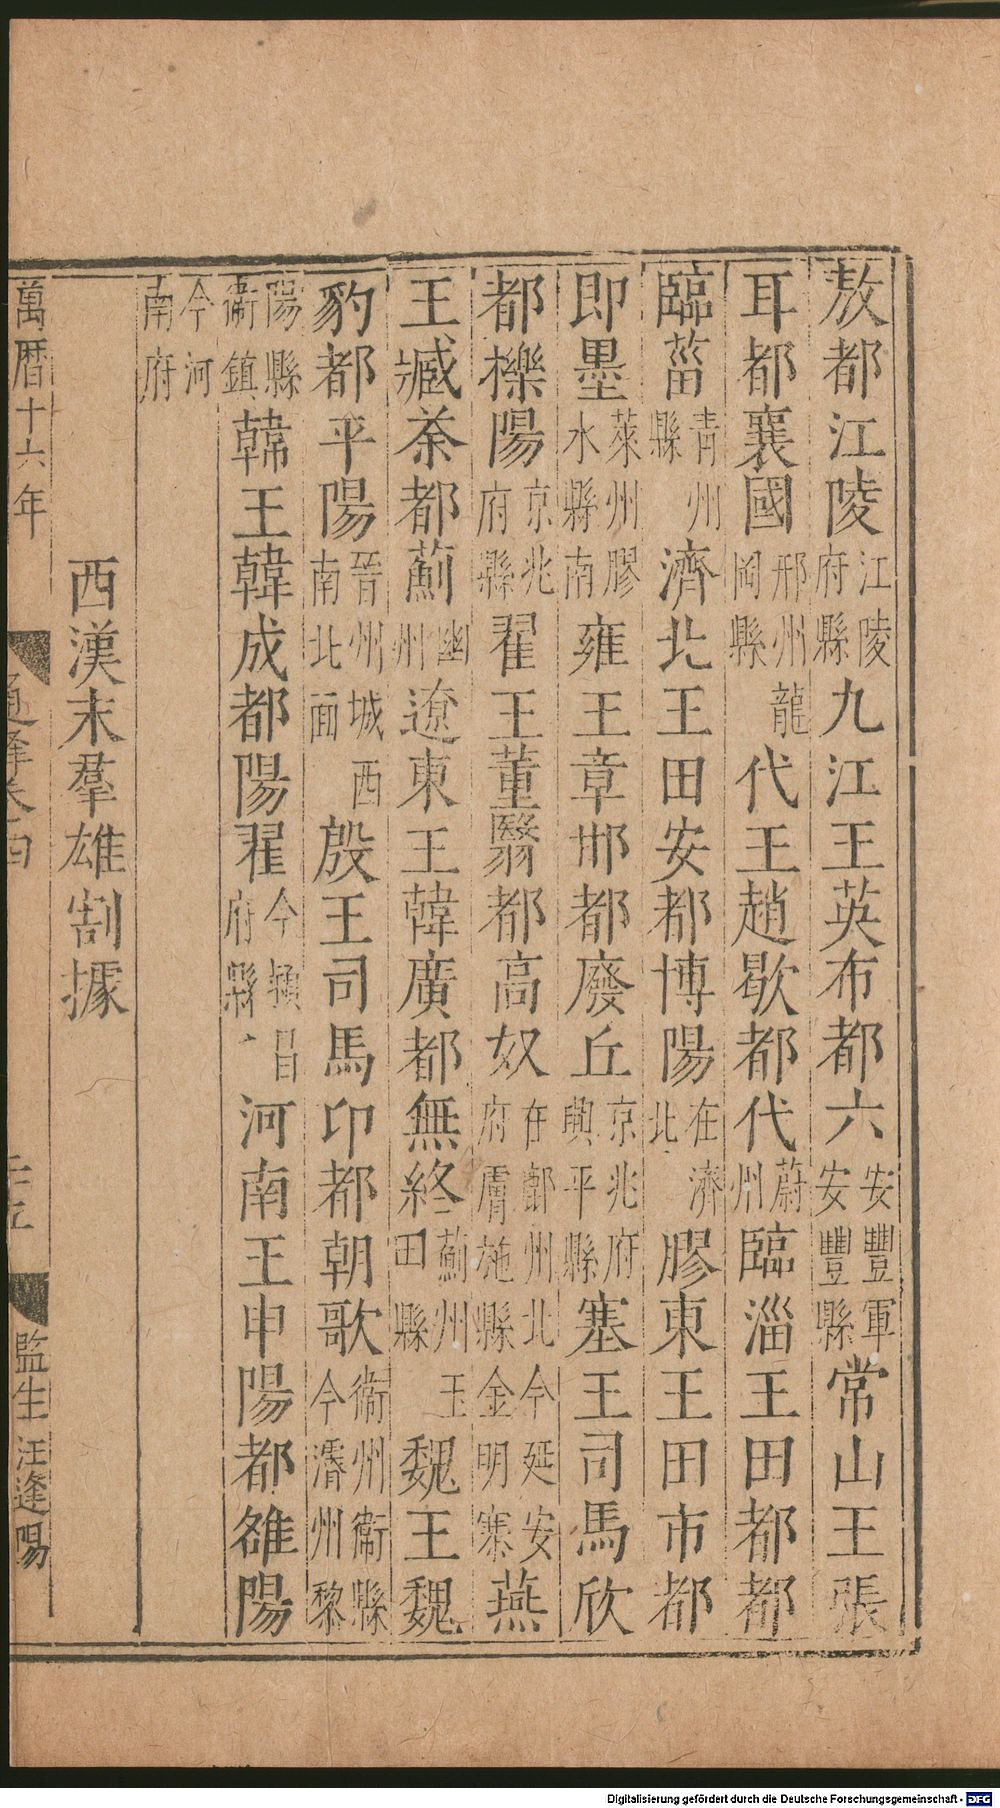 敖都江陵江陵府縣九江王英布都六安豐軍安豐縣常山王張
耳都襄國邢州龍岡縣代王趙歇都代蔚州臨淄王田都都
臨菑青州縣濟北王田安都博陽在濟北膠東王田市都
即墨萊州膠水縣南雍王章邯都廢丘京兆府興平縣塞王司馬欣
都櫟陽京兆府縣翟王董翳都高奴在鄜州北府膚施縣今延安金明寨燕
王臧荼都薊幽州遼東王韓廣都無終薊州玉田縣魏王魏
豹都平陽晉州城西南北面殷王司馬卬都朝歌衞州衞縣今濬州黎
陽縣衞鎮韓王韓成都陽翟今潁昌府縣河南王申陽都雒陽
今河南府
西漢末羣雄割據
萬曆十六年
通釋卷四
監生汪逢陽